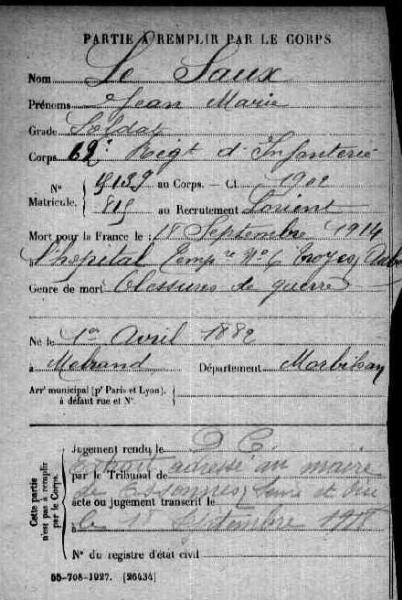 PARTIE À REMPLIR PAR LE CORPS
Nom Le Saux
Prénoms Jean Marie
Grade Soldat
Corps 62e Regt d'Infanterie
N° Matricule. 9139 au Corps. — Cl. 1902
815 au Recrutement Lorient
Mort pour la France le 18 Septembre 1914
à l'hopital Tempre No 6 Troyes Aube
Genre de mort Blessures de guerre
Né le 1er Avril 1882
à Melrand Département Morbihan
Arrt municipal (pr Paris et Lyon), à défaut rue et N°.
Cette partie n'est pas à remplir par le Corps.
Jugement rendu le D C.
par le Tribunal de Extrait adressé au maire
acte ou jugement transcrit le de Essonnes, Seine et Oise
le 1 Septembre
N° du registre d'état civil
55-708-1927. [26434]